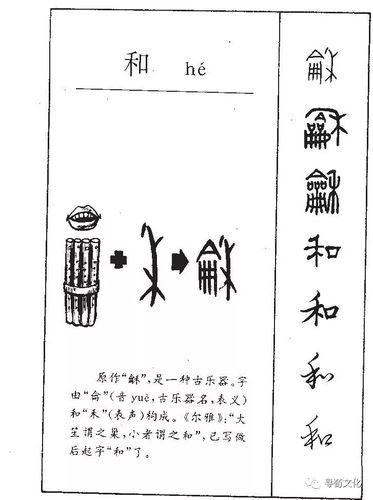 和 hé
龢
原作“龢”,是一种古乐器。字
由“龠”(音 yuè,古乐器名,表义)
和“禾”(表声)构成。《尔雅》:“大
笙谓之巢,小者谓之和”,已写做
后起字“和”了。
龢
龢
龢
和
和
和
和